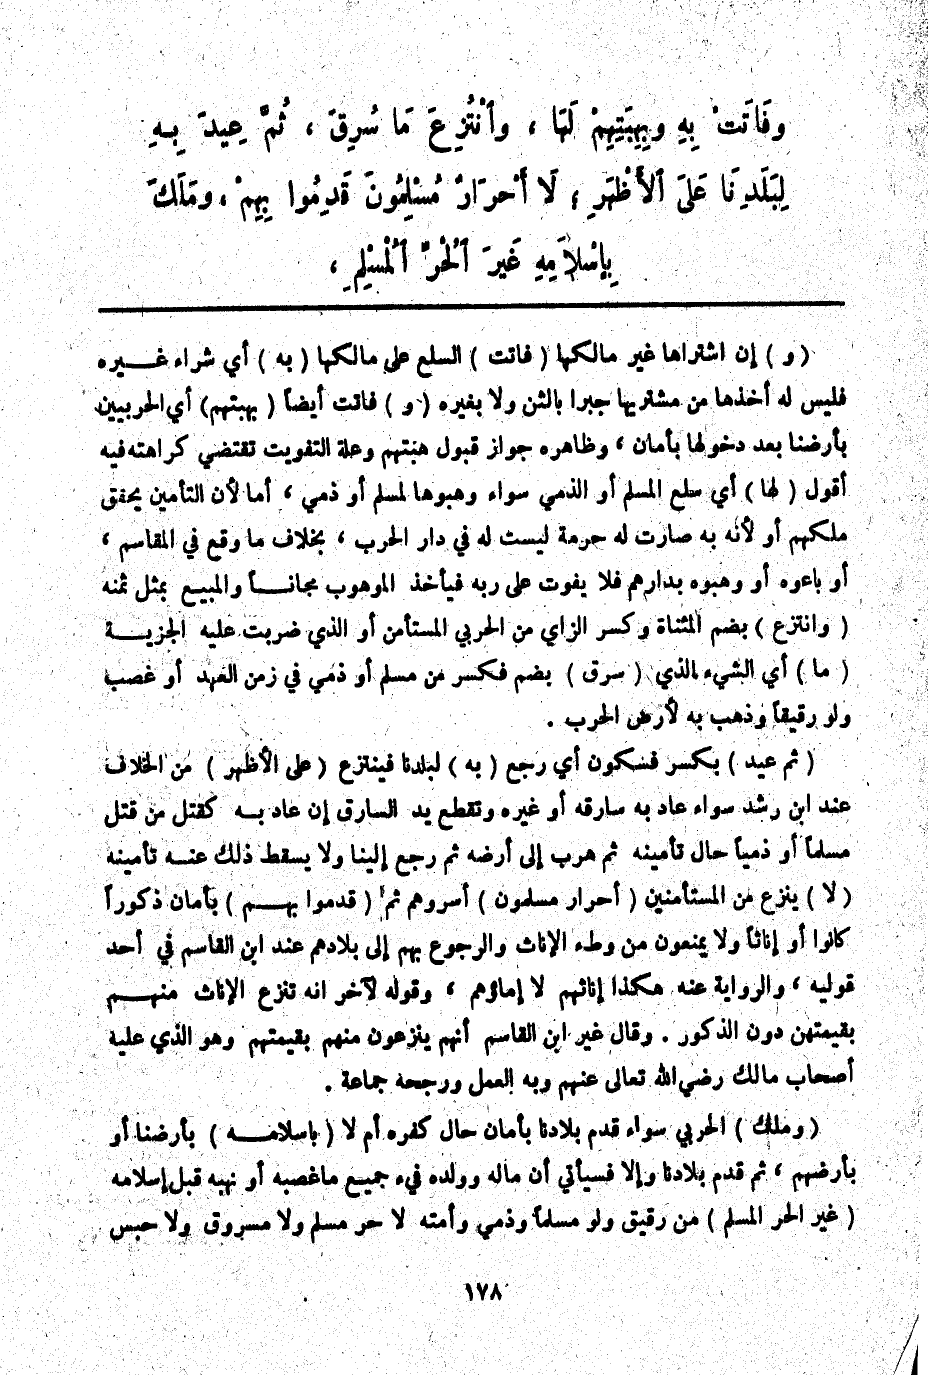 وفَاتَتْ بِهِ وبِهِبَتِهِمْ لَهَا ، وٱنْتُزِعَ مَا سُرِقَ ، ثُمَّ عِيدَ بِهِ
لِبَلَدِنَا عَلَى ٱلأَظْهَرِ ؛ لَا أَحْرَارٌ مُسْلِمُونَ قَدِمُوا بِهِمْ ، ومَلَكَ
بِإِسْلَامِهِ غَيرَ ٱلْحُرِّ ٱلْمُسْلِمِ ،
( و ) إن اشتراها غير مالكها ( فاتت ) السلع على مالكها ( به ) أي شراء غـــيره
فليس له أخذها من مشتريها جبرا بالثمن ولا بغيره ( و ) فاتت أيضاً ( بهبتهم) أي الحربيين
بأرضنا بعد دخولها بأمان ، وظاهره جواز قبول هبتهم وعلة التفويت تقتضي كراهته فيه
أقول ( لها ) أي سلع المسلم أو الذمي سواء وهبوها لمسلم أو ذمي ، أما لأن التأمين يحقق
ملكهم أو لأنه به صارت له حرمة ليست له في دار الحرب ، بخلاف ما وقع في المقاسم ،
أو باعوه أو وهبوه بدارهم فلا يفوت على ربه فيأخذ الموهوب مجانــاً والمبيع بمثل ثمنه
( وانتزع ) بضم المثناة وكسر الزاي من الحربي المستأمن أو الذي ضربت عليه الجزيــة
( ما ) أي الشيء الذي ( سرق ) بضم فكسر من مسلم أو ذمي في زمن العهد أو غصب
ولو رقيقاً وذهب به لأرض الحرب .
( ثم عيد ) بكسر فسكون أي رجع ( به ) لبلدنا فينتزع ( على الأظهر ) من الخلاف
عند ابن رشد سواء عاد به سارقه أو غيره وتقطع يد السارق إن عاد بــه كقتل من قتل
مسلماً أو ذمياً حال تأمينه ثم هرب إلى أرضه ثم رجع إلينا ولا يسقط ذلك عنــه تأمينه
( لا ) ينزع من المستأمنين ( أحرار مسلمون ) أسروهم ثم ( قدموا بهــم ) بأمان ذكوراً
كانوا أو إناثاً ولا يمنعون من وطء الإناث والرجوع بهم إلى بلادهم عند ابن القاسم في أحد
قوليه ، والرواية عنه هكذا إناثهم لا إماؤهم ، وقوله لآخر انه تنزع الإناث منهــم
بقيمتهن دون الذكور . وقال غير ابن القاسم أنهم ينزعون منهم بقيمتهم وهو الذي عليه
أصحاب مالك رضي الله تعالى عنهم وبه العمل ورجحه جماعة .
( وملك ) الحربي سواء قدم بلادنا بأمان حال كفره أم لا ( باسلامــه ) بأرضنا أو
بأرضهم ، ثم قدم بلادنا وإلا فسيأتي أن ماله وولده فيء جميع ماغصبه أو نهبه قبل إسلامه
( غير الحر المسلم ) من رقيق ولو مسلماً وذمي وأمته لا حر مسلم ولا مسروق ولا حبس
١٧٨